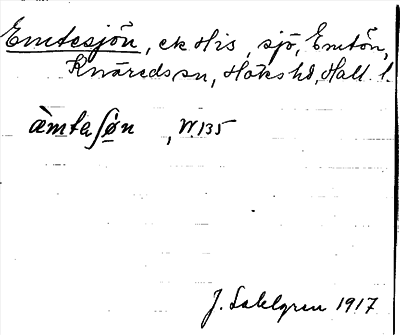 Emtesjön, ek His, sjö, Emtön,
Knäreds sn, Höks hd, Hall. l.
àmtaʃøn , W.135
J. Sahlgren 1917